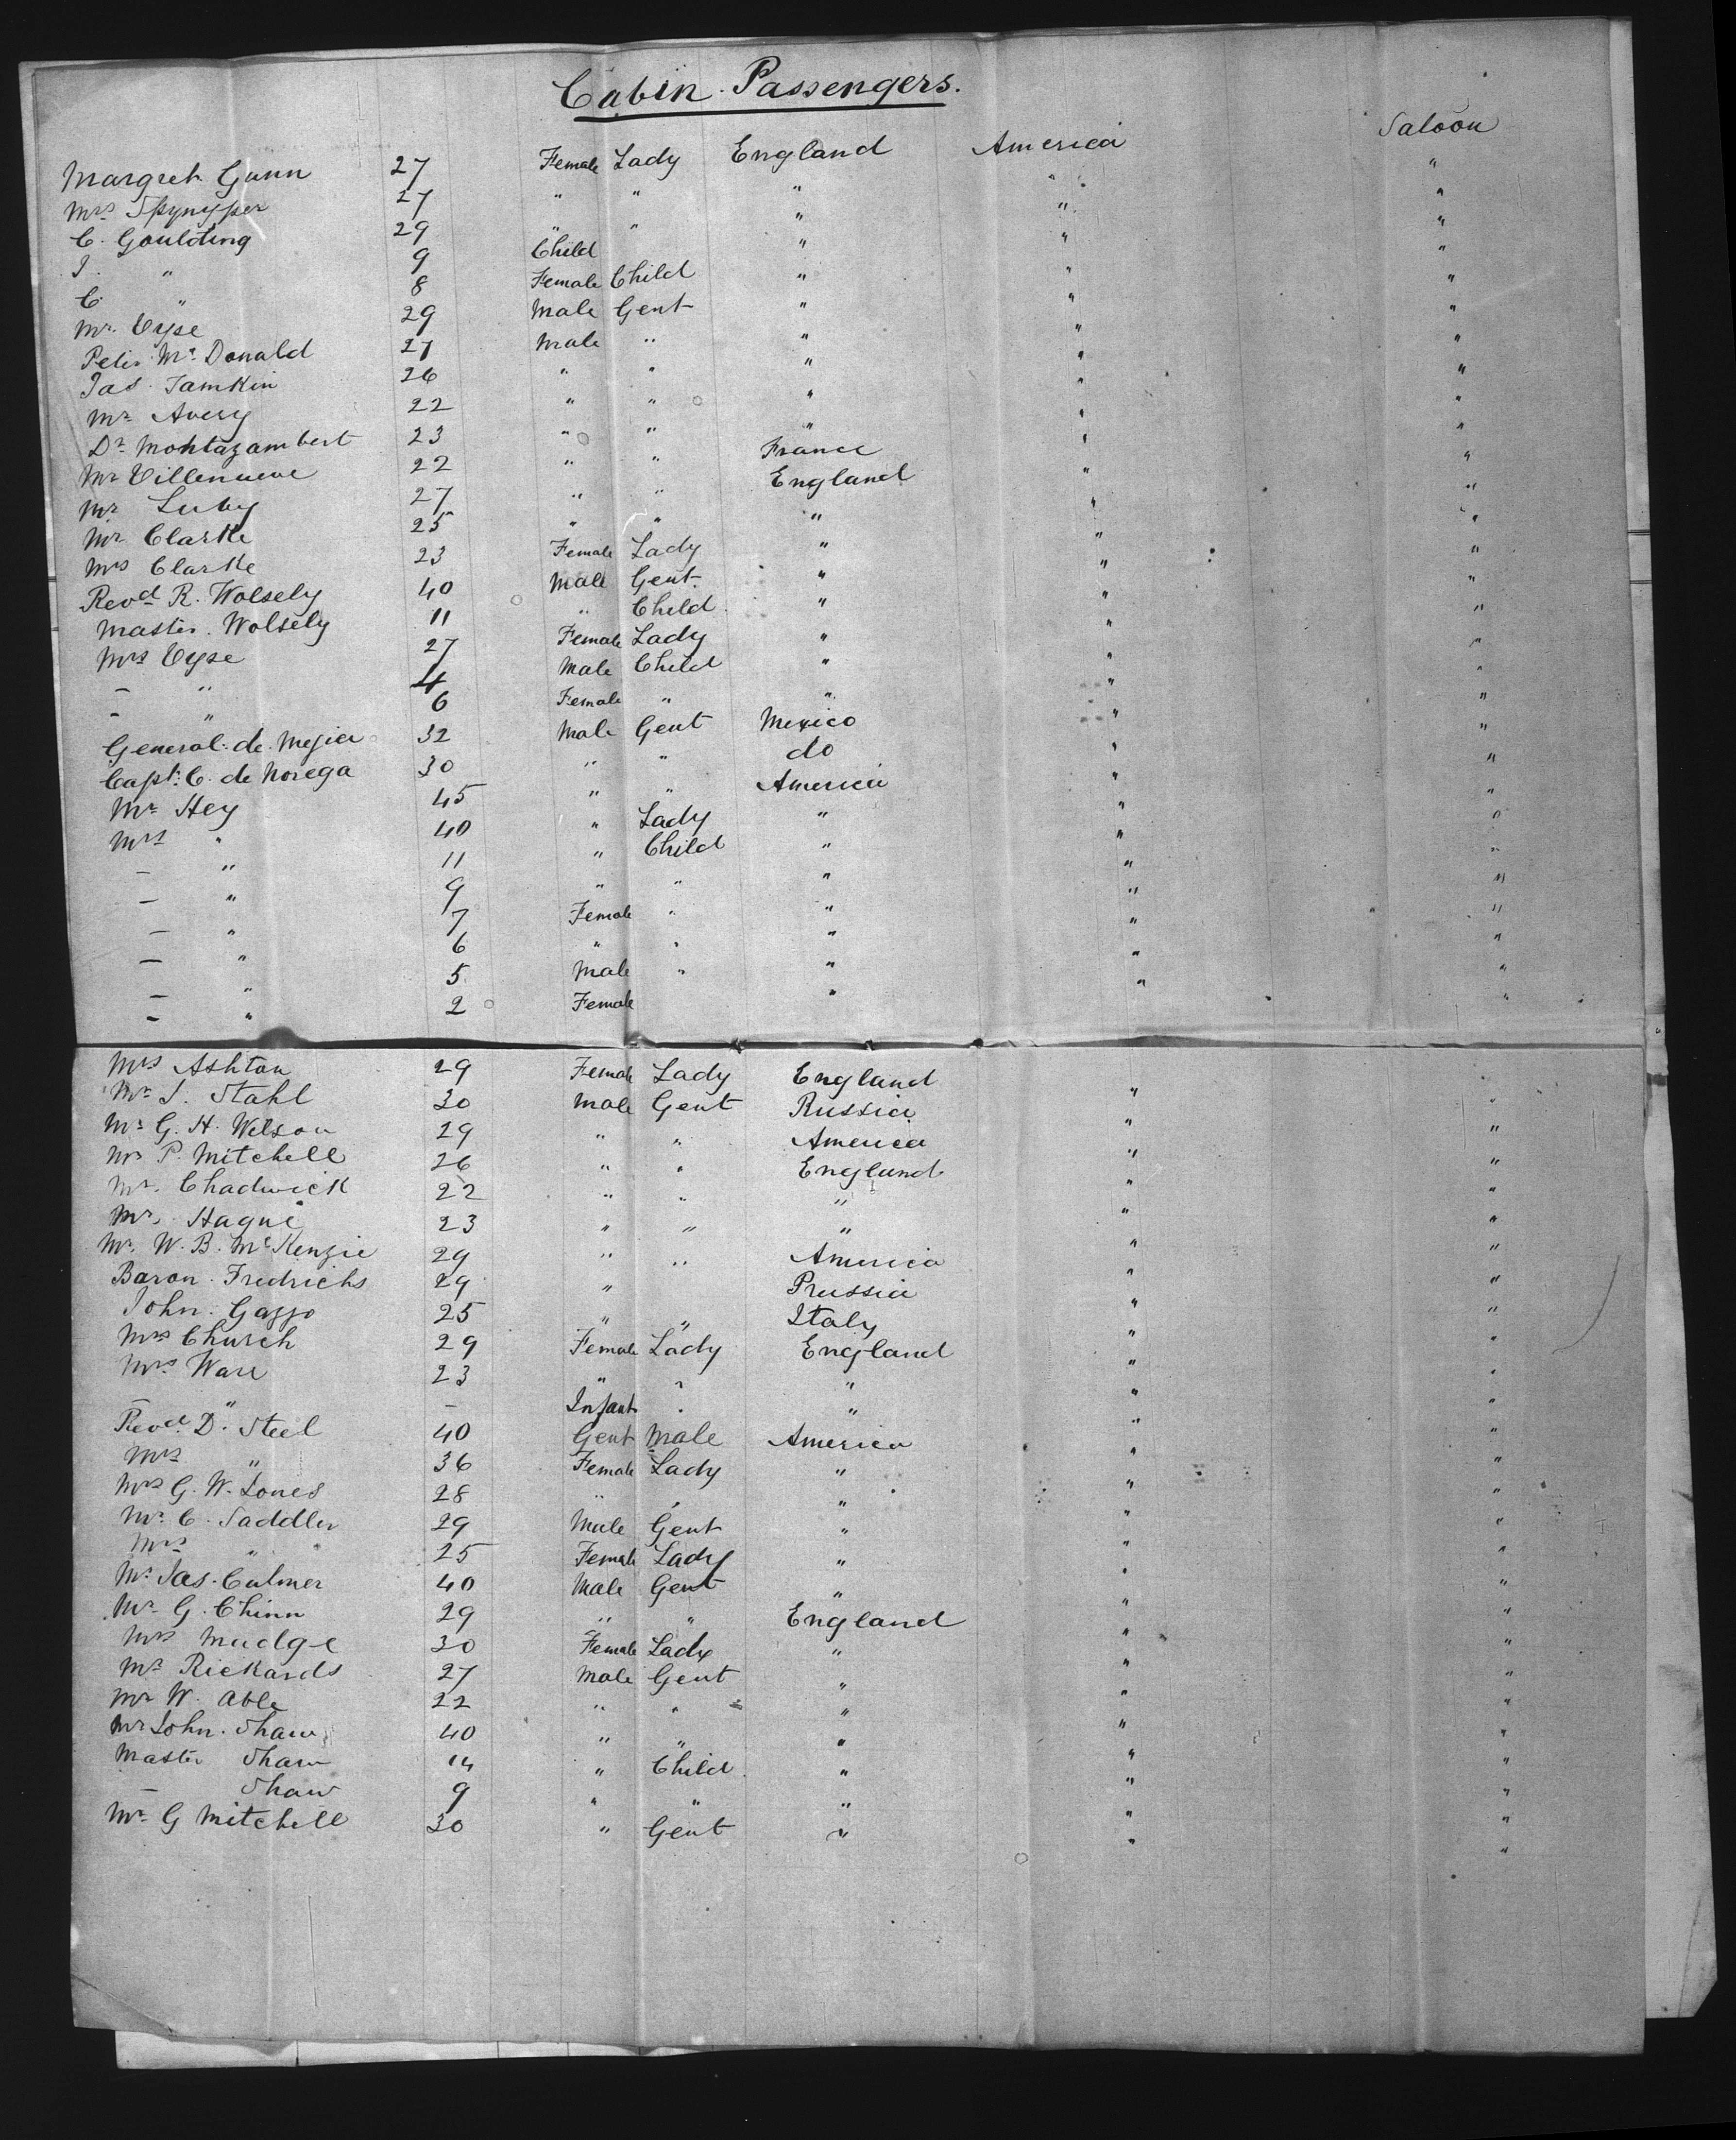 Cabin Passengers.
Margret Gunn 27 Female Lady England America Saloon
Mrs 27 " " " " "
C. Goulding 29 " " " " "
J. " 9 Child " " "
C. " 8 Female Child " " "
Mr. Eyse 29 Male Gent " " "
Peter McDonald 27 Male " " " "
Jas. Tamkin 26 " " " " "
Mr Avery 22 " " " " "
Dr Montazambert 23 " " " " "
Mr Villenueve 22 " " France " "
Mr Luby 27 " " England " "
Mr Clarke 25 " " " " "
Mrs Clarke 23 Female Lady " " "
Revd R. Wolsely 40 Male Gent. " " "
Master. Wolsely 11 " Child " " "
Mrs Eyse 27 Female Lady " " "
- " 4 Male Child " " "
- " 6 Female " " " "
General. de. Mejia 32 Male Gent Mexico " "
Capt: C. de Norega 30 " " do " "
Mr Hey 45 " " America " "
Mrs " 40 " Lady " " "
- " 11 " Child " " "
- " 9 " " " " "
- " 7 Female " " " "
- " 6 " " " " "
- " 5 Male " " " "
- " 2 Female " " "
Mrs Ashton 29 Female Lady England " "
Mr J. Stahl 30 Male Gent Russia " "
Mr G. H. Wilson 29 " " America " "
Mr P. Mitchell 26 " " England " "
Mr. Chadwick 22 " " " " "
Mr. Hague 23 " " " " "
Mr. W. B. McKenzie 29 " " America " "
Baron Fredrichs 29 " Prussia " "
John. Gazzo 25 " " Italy " "
Mrs Church 29 Female Lady England " "
Mrs Ware 23 " " " " "
- " - Infant " " " "
Revd. D. Steel 40 Gent Male America " "
Mrs " 36 Female Lady " " "
Mrs G. W. Jones 28 " " " " "
Mr. C. Saddler 29 Male Gent " " "
Mrs " 25 Female Lady " " "
Mr Jas. Culmer 40 Male Gent " " "
Mr G. Chinn 29 " " England " "
Mrs Madge 30 Female Lady " " "
Mr Rickards 27 Male Gent " " "
Mr W. Able 22 " " " " "
Mr John. Shaw 40 " " " " "
Master Shaw 14 " Child " " "
- Shaw 9 " " " " "
Mr G Mitchell 30 " Gent " " "